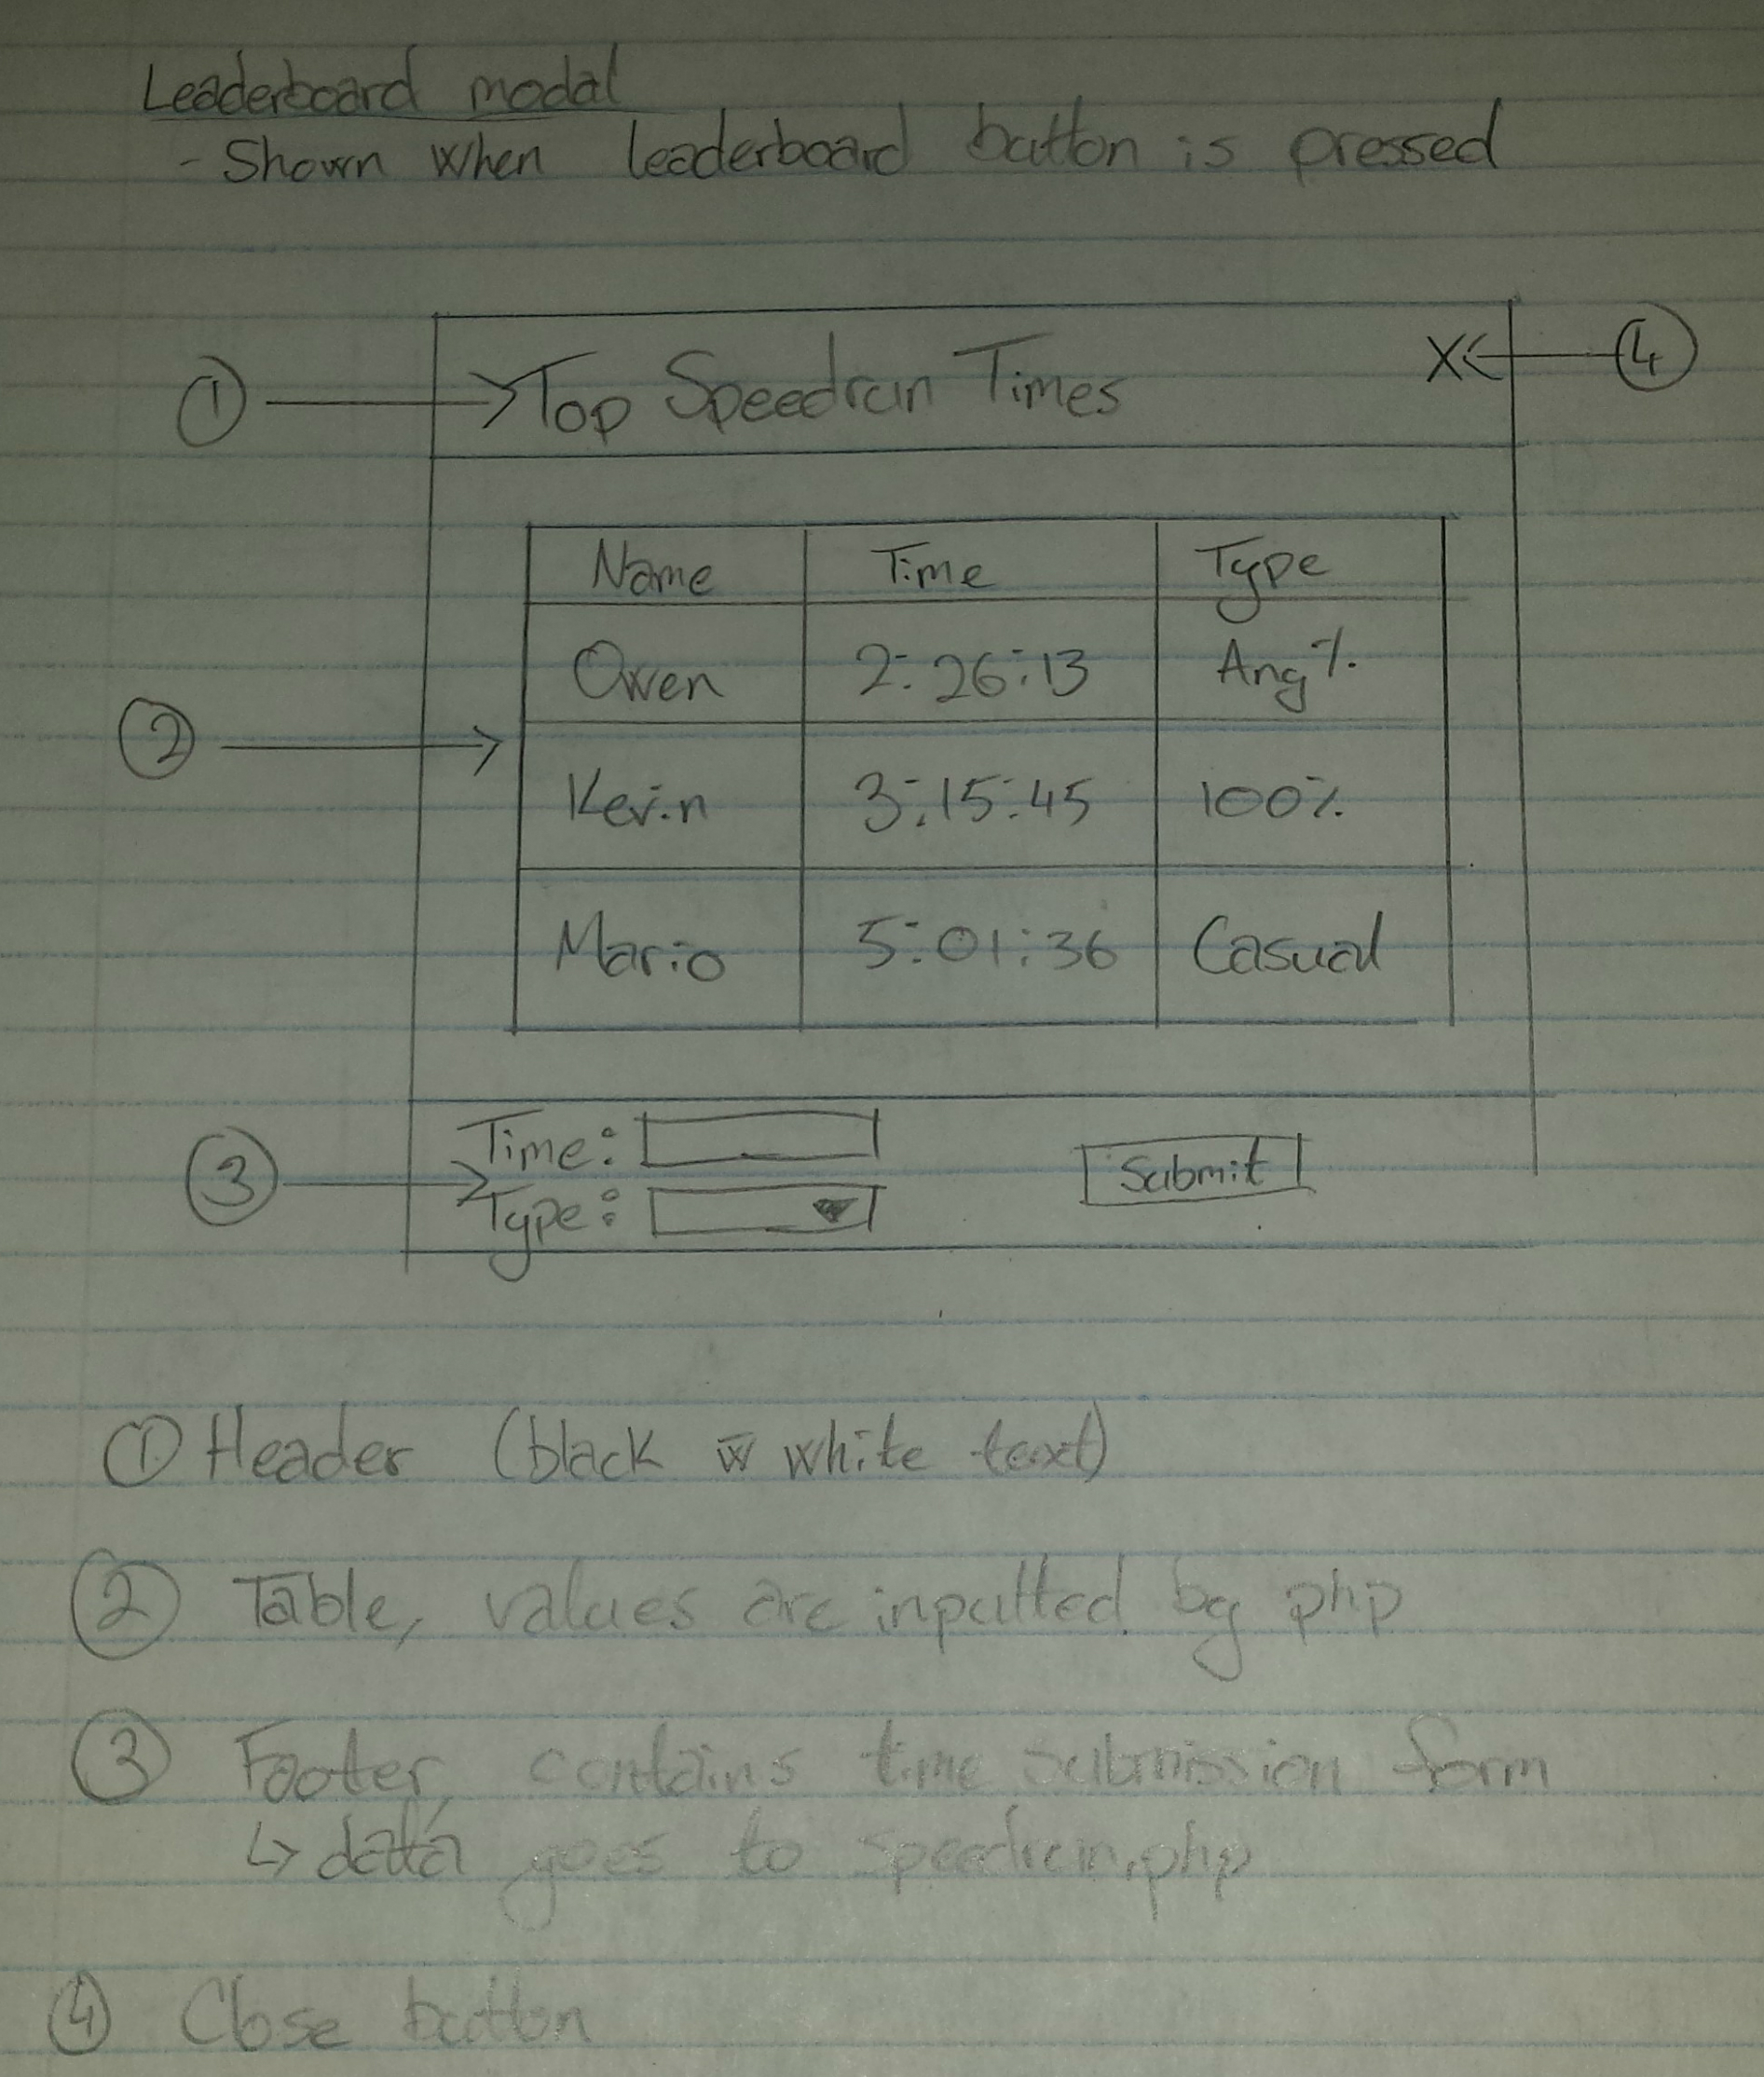 Leaderboard modal
- Shown when leaderboard button is pressed
① Top Speedrun Times X ④
Name Time Type
Owen 2:26:13 Any%
② Kevin 3:15:45 100%
Mario 5:01:36 Casual
Time:
③ Submit
Type:
① Header (black w̄ white text)
② Table, values are inputted by php
③ Footer, contains time submission form
↳ data goes to speedrun.php
④ Close button